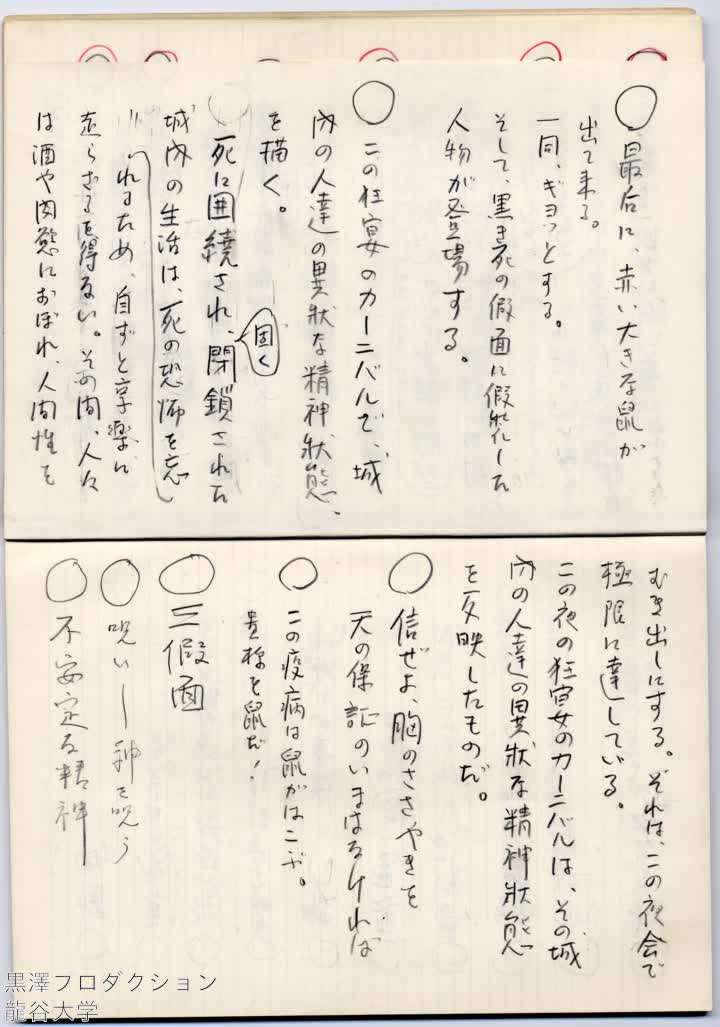 ○最后に、赤い大きな鼠が
出て来る。
一同、ギョッとする。
そして、黒き死の假面に假装した
人物が登場する。
○この狂宴のカーニバルで、城
内の人達の異狀な精神狀態、
を描く。
死に囲繞され、固く閉鎖された
城内の生活は、死の恐怖を忘
れるため、自ずと享楽に
走らざるを得ない。その間、人々
は酒や肉慾におぼれ、人間性を
むき出しにする。それは、この夜会で
極限に達している。
この夜の狂宴のカーニバルは、その城
内の人達の異狀な精神狀態
を反映したものだ。
○信ぜよ、胸のささやきを
天の保証のいまはなければ
○この疫病は鼠がはこぶ。
貴様も鼠だ!
○三假面
○呪い―神を呪う
○不安定な精神
黒澤プロダクション
龍谷大学